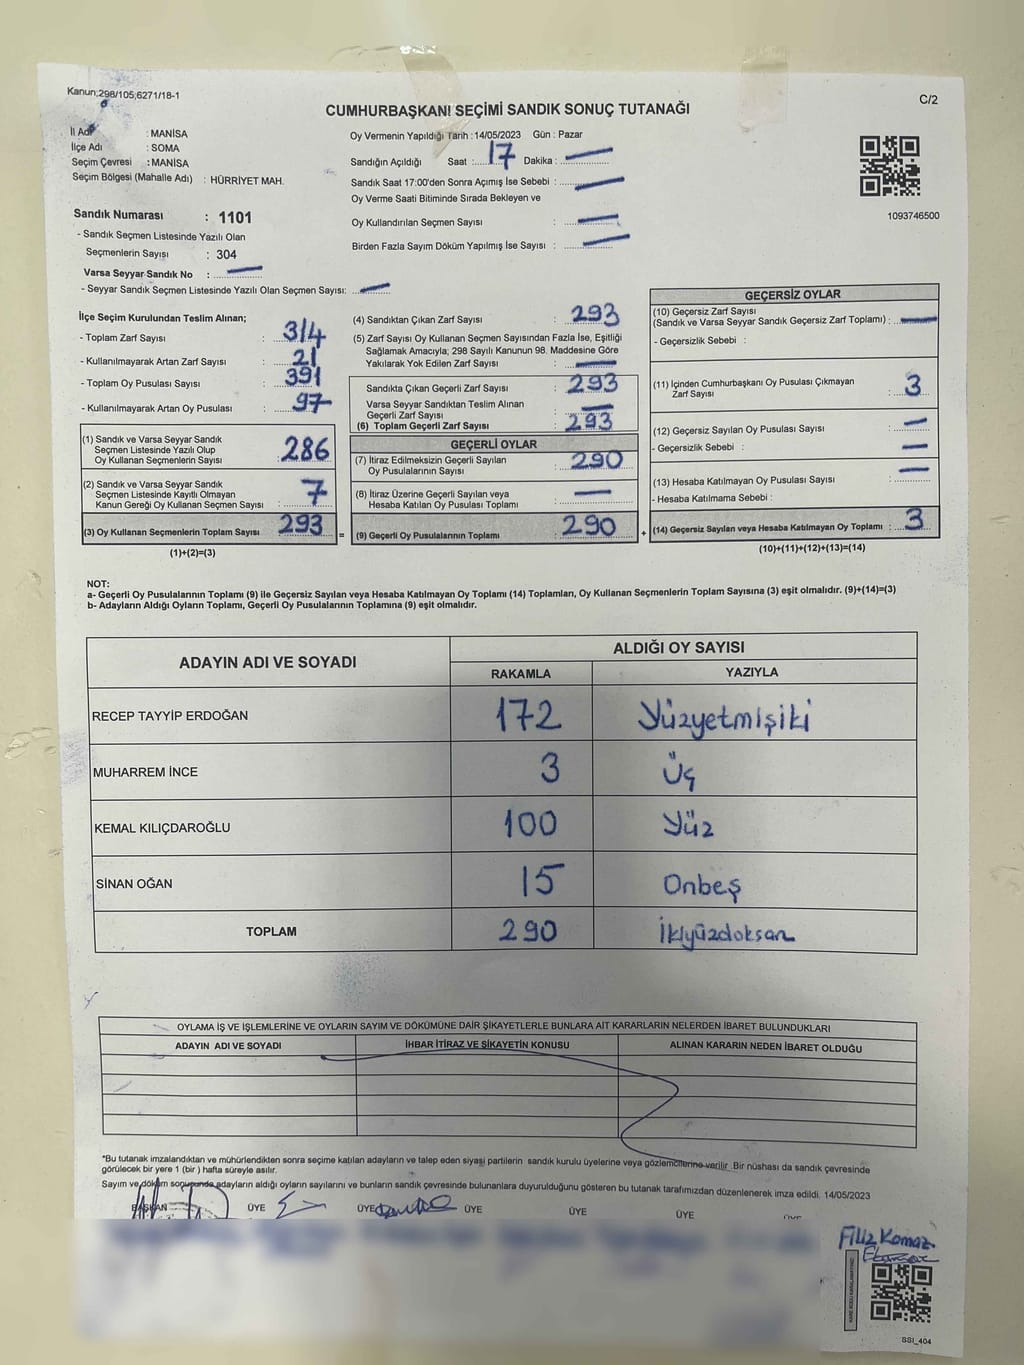 Kanun;298/105,6271/18-1
CUMHURBAŞKANI SEÇİMİ SANDIK SONUÇ TUTANAĞI
C/2
İl Adı : MANİSA
İlçe Adı : SOMA
Seçim Çevresi : MANİSA
Seçim Bölgesi (Mahalle Adı) : HÜRRİYET MAH.
Oy Vermenin Yapıldığı Tarih : 14/05/2023 Gün : Pazar
Sandığın Açıldığı Saat : 17 Dakika : —
Sandık Saat 17:00'den Sonra Açımış İse Sebebi : —
Oy Verme Saati Bitiminde Sırada Bekleyen ve
Oy Kullandırılan Seçmen Sayısı : —
Birden Fazla Sayım Döküm Yapılmış İse Sayısı : —
1093746500
Sandık Numarası : 1101
- Sandık Seçmen Listesinde Yazılı Olan
Seçmenlerin Sayısı : 304
Varsa Seyyar Sandık No : —
- Seyyar Sandık Seçmen Listesinde Yazılı Olan Seçmen Sayısı: —
İlçe Seçim Kurulundan Teslim Alınan;
- Toplam Zarf Sayısı : 314
- Kullanılmayarak Artan Zarf Sayısı : 21
- Toplam Oy Pusulası Sayısı : 391
- Kullanılmayarak Artan Oy Pusulası : 97
(1) Sandık ve Varsa Seyyar Sandık
Seçmen Listesinde Yazılı Olup
Oy Kullanan Seçmenlerin Sayısı : 286
(2) Sandık ve Varsa Seyyar Sandık
Seçmen Listesinde Kayıtlı Olmayan
Kanun Gereği Oy Kullanan Seçmen Sayısı : 7
(3) Oy Kullanan Seçmenlerin Toplam Sayısı : 293 =
(1)+(2)=(3)
(4) Sandıktan Çıkan Zarf Sayısı : 293
(5) Zarf Sayısı Oy Kullanan Seçmen Sayısından Fazla İse, Eşitliği
Sağlamak Amacıyla; 298 Sayılı Kanunun 98. Maddesine Göre
Yakılarak Yok Edilen Zarf Sayısı : —
Sandıkta Çıkan Geçerli Zarf Sayısı : 293
Varsa Seyyar Sandıktan Teslim Alınan
Geçerli Zarf Sayısı : —
(6) Toplam Geçerli Zarf Sayısı : 293
GEÇERLİ OYLAR
(7) İtiraz Edilmeksizin Geçerli Sayılan
Oy Pusulalarının Sayısı : 290
(8) İtiraz Üzerine Geçerli Sayılan veya
Hesaba Katılan Oy Pusulası Toplamı : —
(9) Geçerli Oy Pusulalarının Toplamı : 290 +
GEÇERSİZ OYLAR
(10) Geçersiz Zarf Sayısı
(Sandık ve Varsa Seyyar Sandık Geçersiz Zarf Toplamı) : —
- Geçersizlik Sebebi :
(11) İçinden Cumhurbaşkanı Oy Pusulası Çıkmayan
Zarf Sayısı : 3
(12) Geçersiz Sayılan Oy Pusulası Sayısı : —
- Geçersizlik Sebebi : —
(13) Hesaba Katılmayan Oy Pusulası Sayısı : —
- Hesaba Katılmama Sebebi :
(14) Geçersiz Sayılan veya Hesaba Katılmayan Oy Toplamı : 3
(10)+(11)+(12)+(13)=(14)
NOT:
a- Geçerli Oy Pusulalarının Toplamı (9) ile Geçersiz Sayılan veya Hesaba Katılmayan Oy Toplamı (14) Toplamları, Oy Kullanan Seçmenlerin Toplam Sayısına (3) eşit olmalıdır. (9)+(14)=(3)
b- Adayların Aldığı Oyların Toplamı, Geçerli Oy Pusulalarının Toplamına (9) eşit olmalıdır.
ADAYIN ADI VE SOYADI
ALDIĞI OY SAYISI
RAKAMLA YAZIYLA
RECEP TAYYİP ERDOĞAN 172 Yüzyetmişiki
MUHARREM İNCE 3 Üç
KEMAL KILIÇDAROĞLU 100 Yüz
SİNAN OĞAN 15 Onbeş
TOPLAM 290 İkiyüzdoksan
OYLAMA İŞ VE İŞLEMLERİNE VE OYLARIN SAYIM VE DÖKÜMÜNE DAİR ŞİKAYETLERLE BUNLARA AİT KARARLARIN NELERDEN İBARET BULUNDUKLARI
ADAYIN ADI VE SOYADI İHBAR İTİRAZ VE ŞİKAYETİN KONUSU ALINAN KARARIN NEDEN İBARET OLDUĞU
*Bu tutanak imzalandıktan ve mühürlendikten sonra seçime katılan adayların ve talep eden siyasi partilerin sandık kurulu üyelerine veya gözlemcilerine verilir. Bir nüshası da sandık çevresinde
görülecek bir yere 1 (bir ) hafta süreyle asılır.
Sayım ve döküm sonucunda adayların aldığı oyların sayılarını ve bunların sandık çevresinde bulunanlara duyurulduğunu gösteren bu tutanak tarafımızdan düzenlenerek imza edildi. 14/05/2023
BAŞKAN ÜYE ÜYE ÜYE ÜYE ÜYE ÜYE
Filiz Komaz
SSI_404